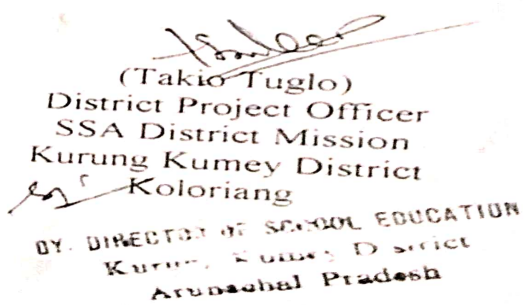 (Takio Tuglo)
District Project Officer
SSA District Mission
Kurung Kumey District
Koloriang
DY. DIRECTOR OF SCHOOL EDUCATION
Kurung Kumey District
Arunachal Pradesh